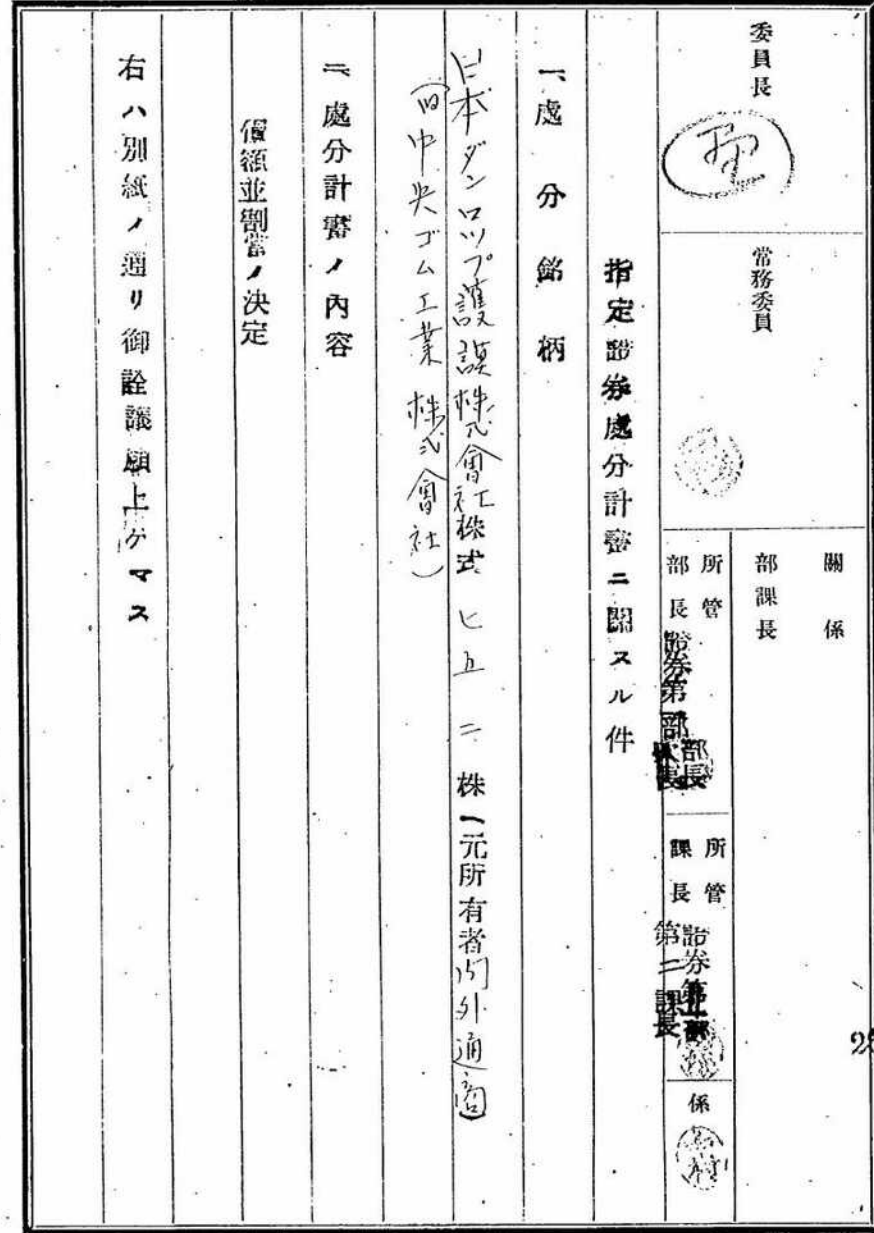 委員長
常務委員
關係
部課長
所管
部長
證券第一部
部長
所管
課長
證券第一部
第二課長
係
指定證券處分計畫ニ關スル件
一、處分銘柄
日本ダンロップ護謨株式會社株式 七五二株(元所有者 内外通商)
(旧中央ゴム工業株式會社)
二、處分計畫ノ內容
價額並割當ノ決定
右ハ別紙ノ通リ御詮議願上ゲマス